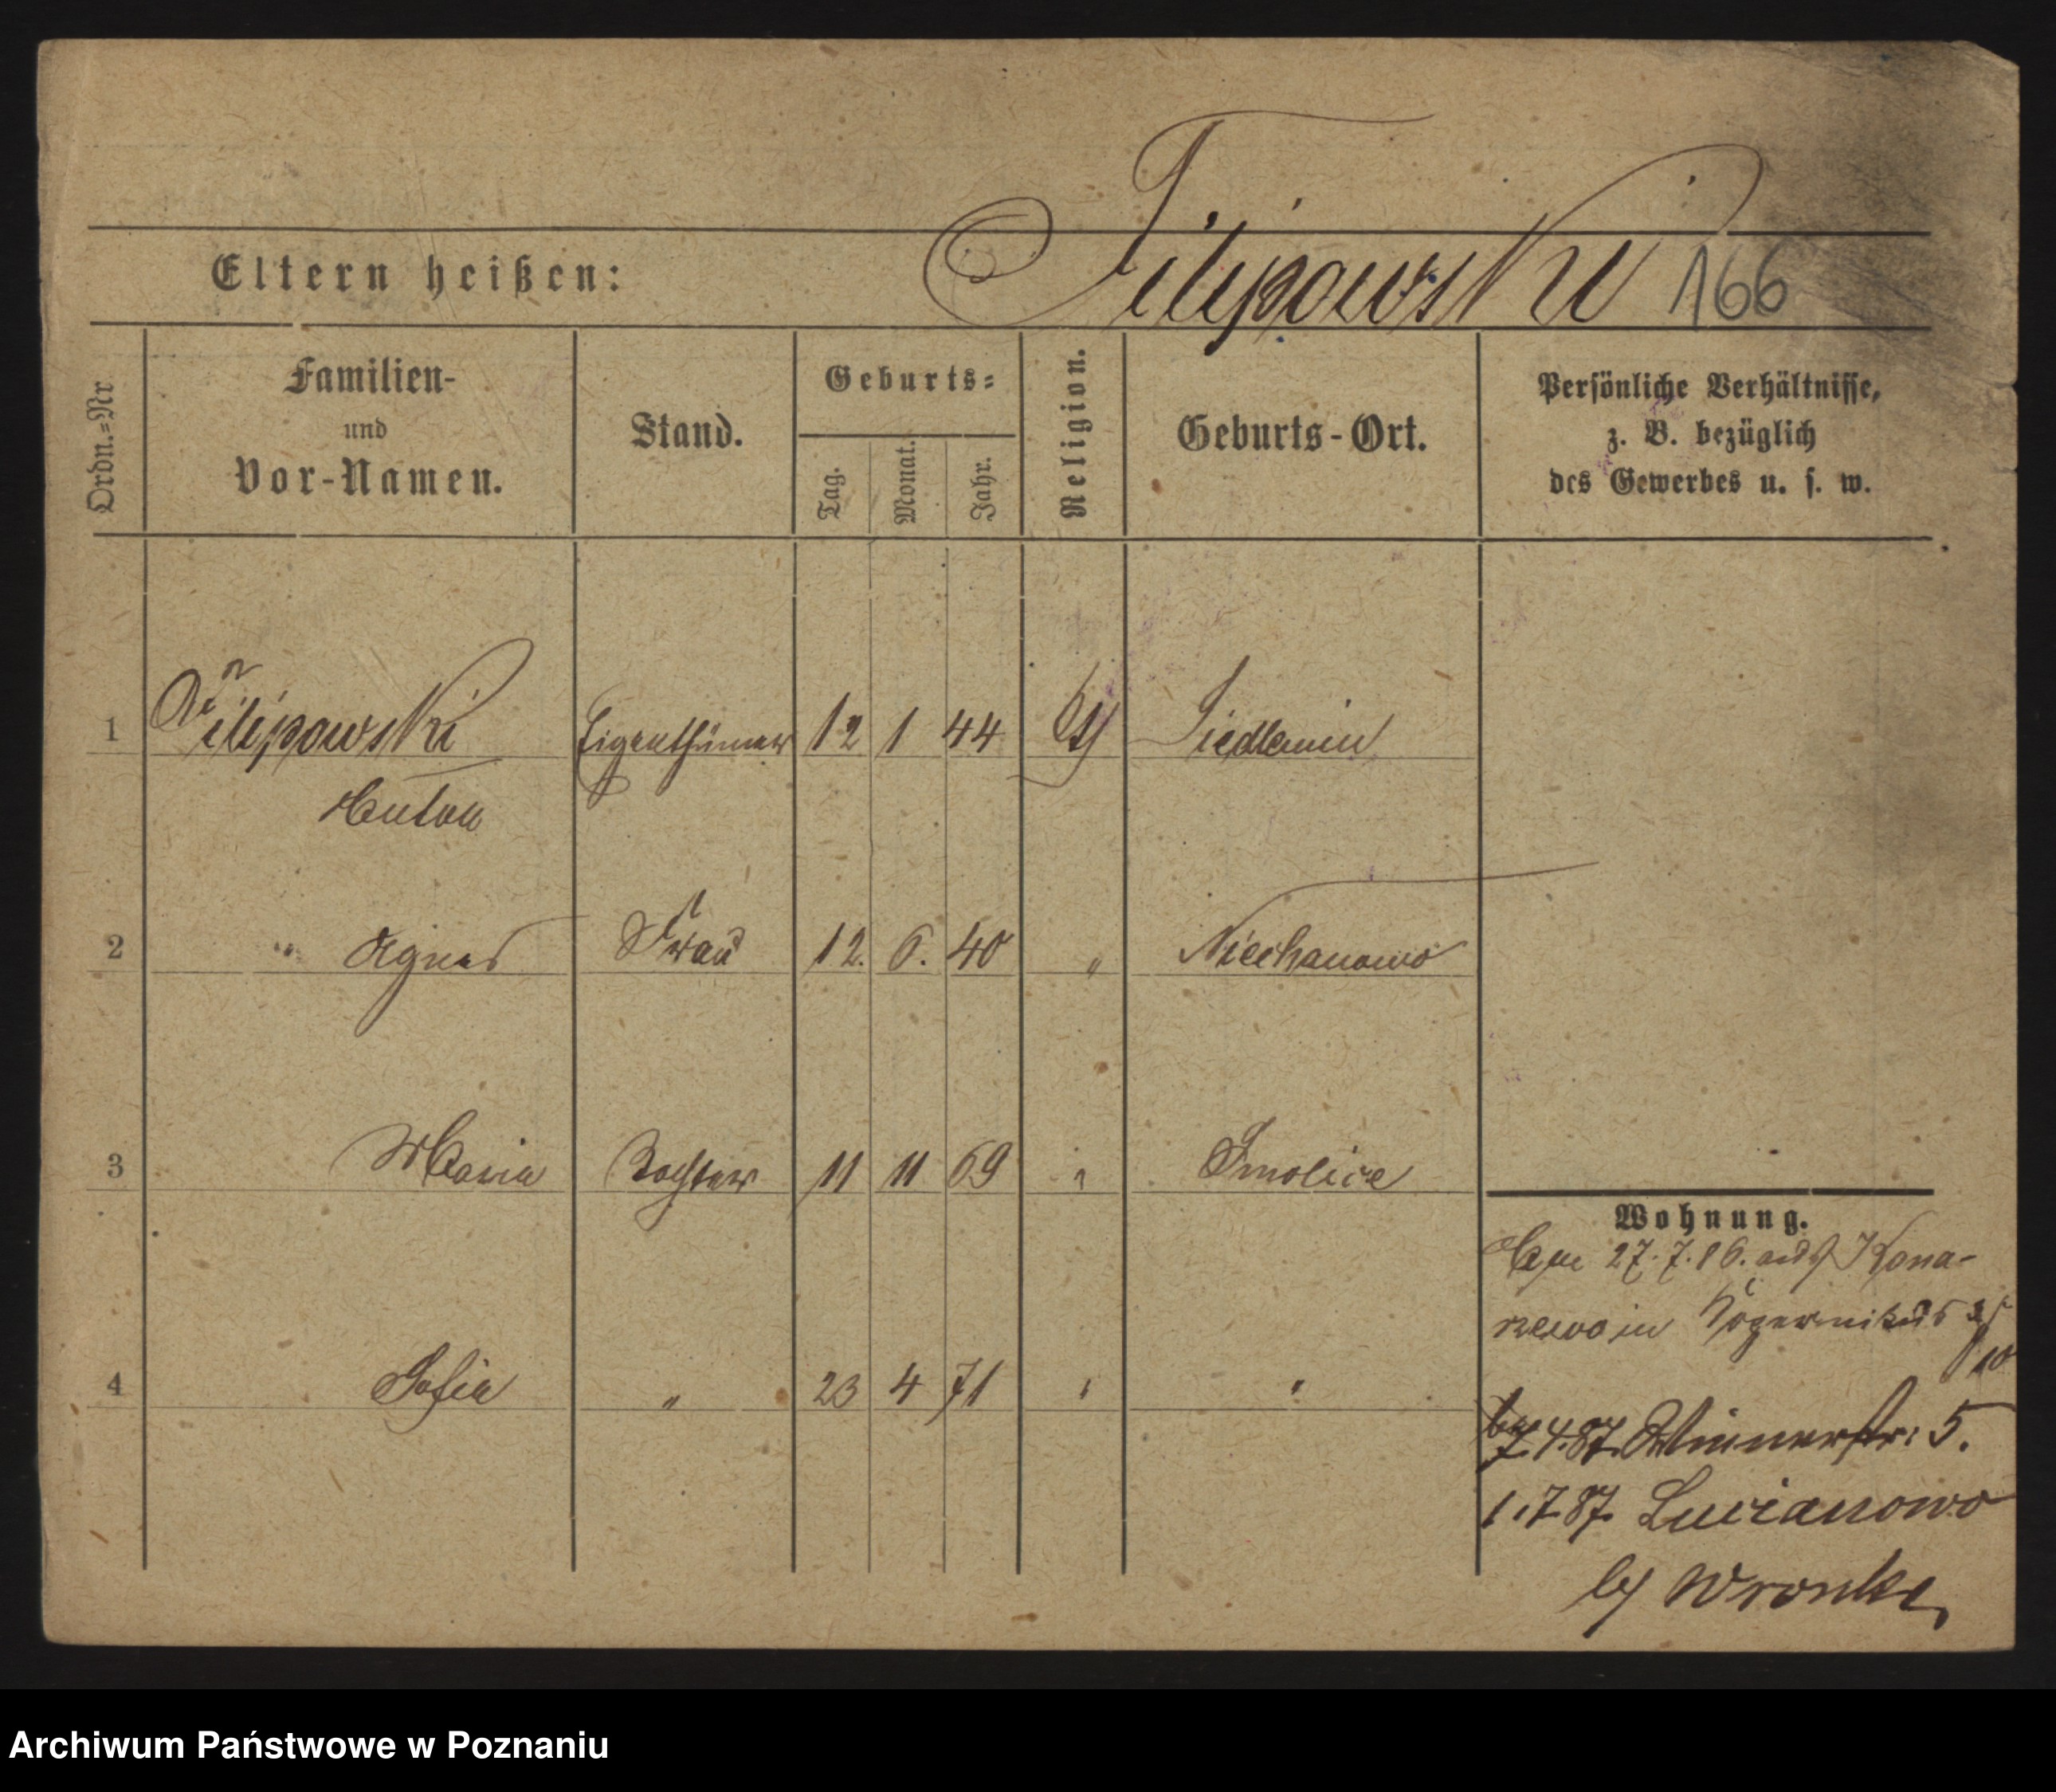 Filipowski 166
Eltern heißen:
Ordn.=Nr.
Familien-
und
Vor-Namen.
Stand.
Geburts=
Tag.
Monat.
Jahr.
Religion.
Geburts-Ort.
Persönliche Verhältnisse,
z. B. bezüglich
des Gewerbes u. s. w.
1 Filipowski Eigenthümer 12 1 44 Siedlemin
Anton
2 " Agnes Frau 12. 6. 40 " Niechanowo
3 Maria Tochter 11 11 69 " Smolice
4 Sofia " 23 4 71 " "
Wohnung.
Am 27.7.86. aus Kona-
rzewo in
7.4.87. 5.
1.7.87. Lucianowo
b/ Wronke
Archiwum Państwowe w Poznaniu